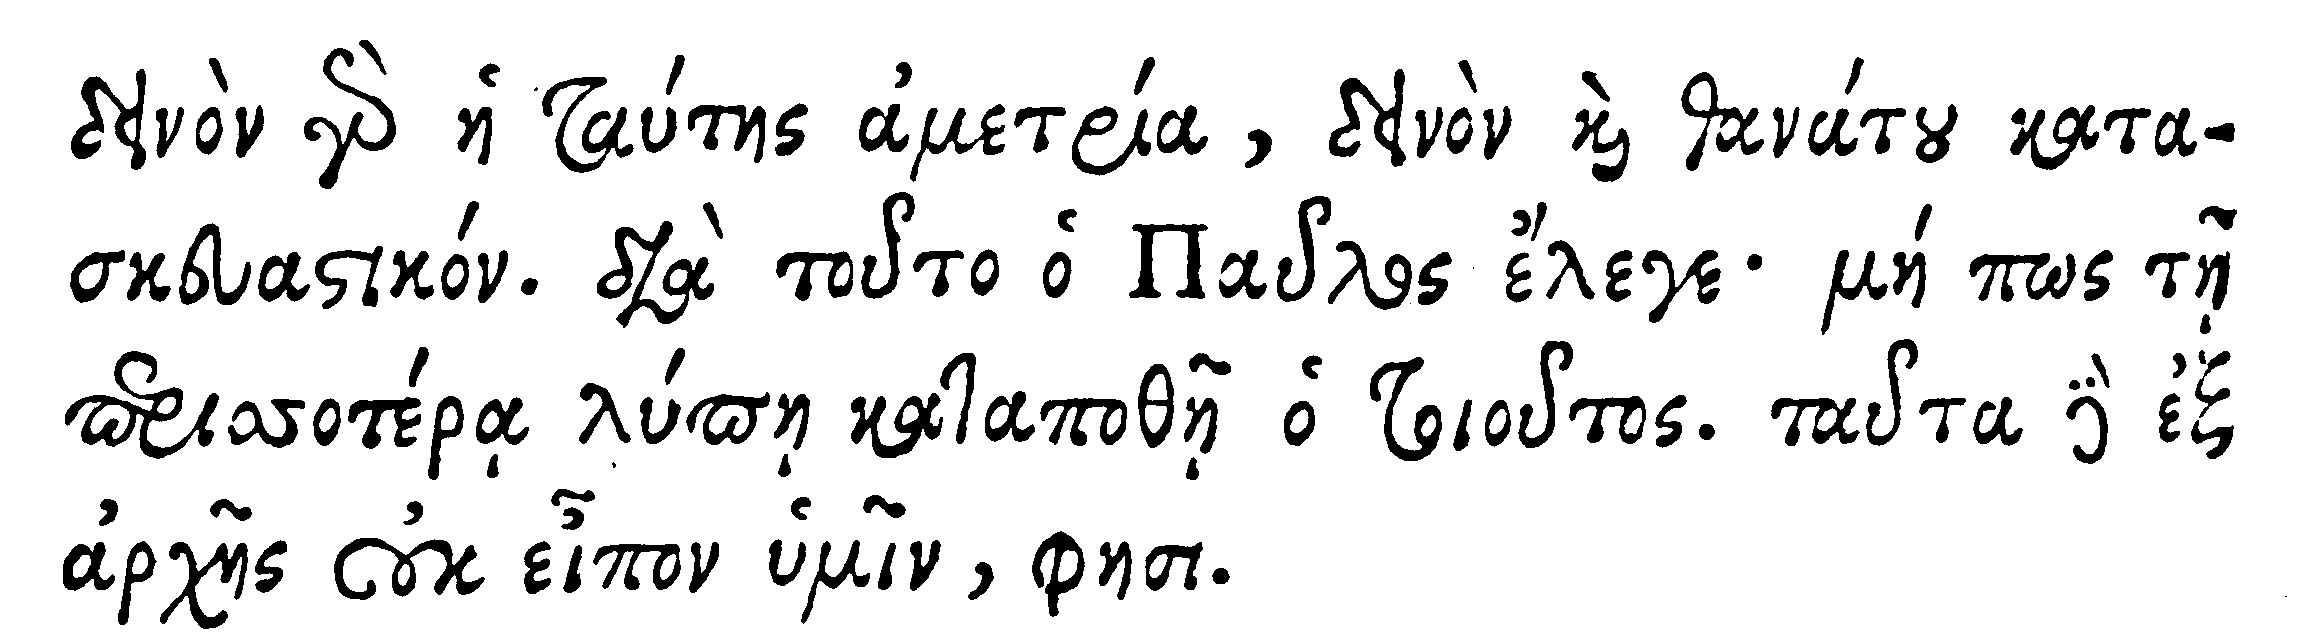 δεινὸν γὰρ ἡ ταύτης ἀμετρία, δεινὸν καὶ θανάτου κατα-
σκευαστικόν. διὰ τοῦτο ὁ Παῦλος ἔλεγε· μή πως τῇ
περισσοτέρᾳ λύπῃ καταποθῇ ὁ τοιοῦτος. ταῦτα δὲ ἐξ
ἀρχῆς οὐκ εἶπον ὑμῖν, φησι.